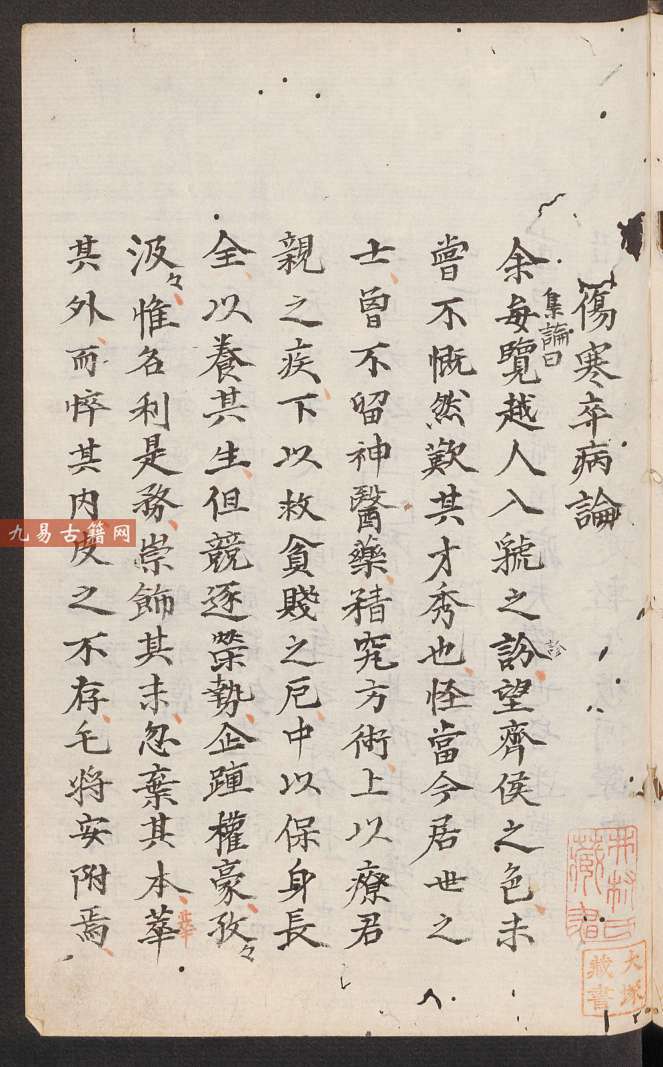 傷寒卒病論
集論曰
余每覽越人入虢之訜望齊侯之色未
診
嘗不慨然歎其才秀也怪當今居世之
士曽不留神醫藥精究方術上以療君
親之疾下以救貧賤之厄中以保身長
全以養其生但競逐榮勢企踵權豪孜々
汲々惟名利是務崇飾其末忽棄其本華
華
其外而悴其内皮之不存毛将安附焉
藏書
大塚藏書
九易古籍网